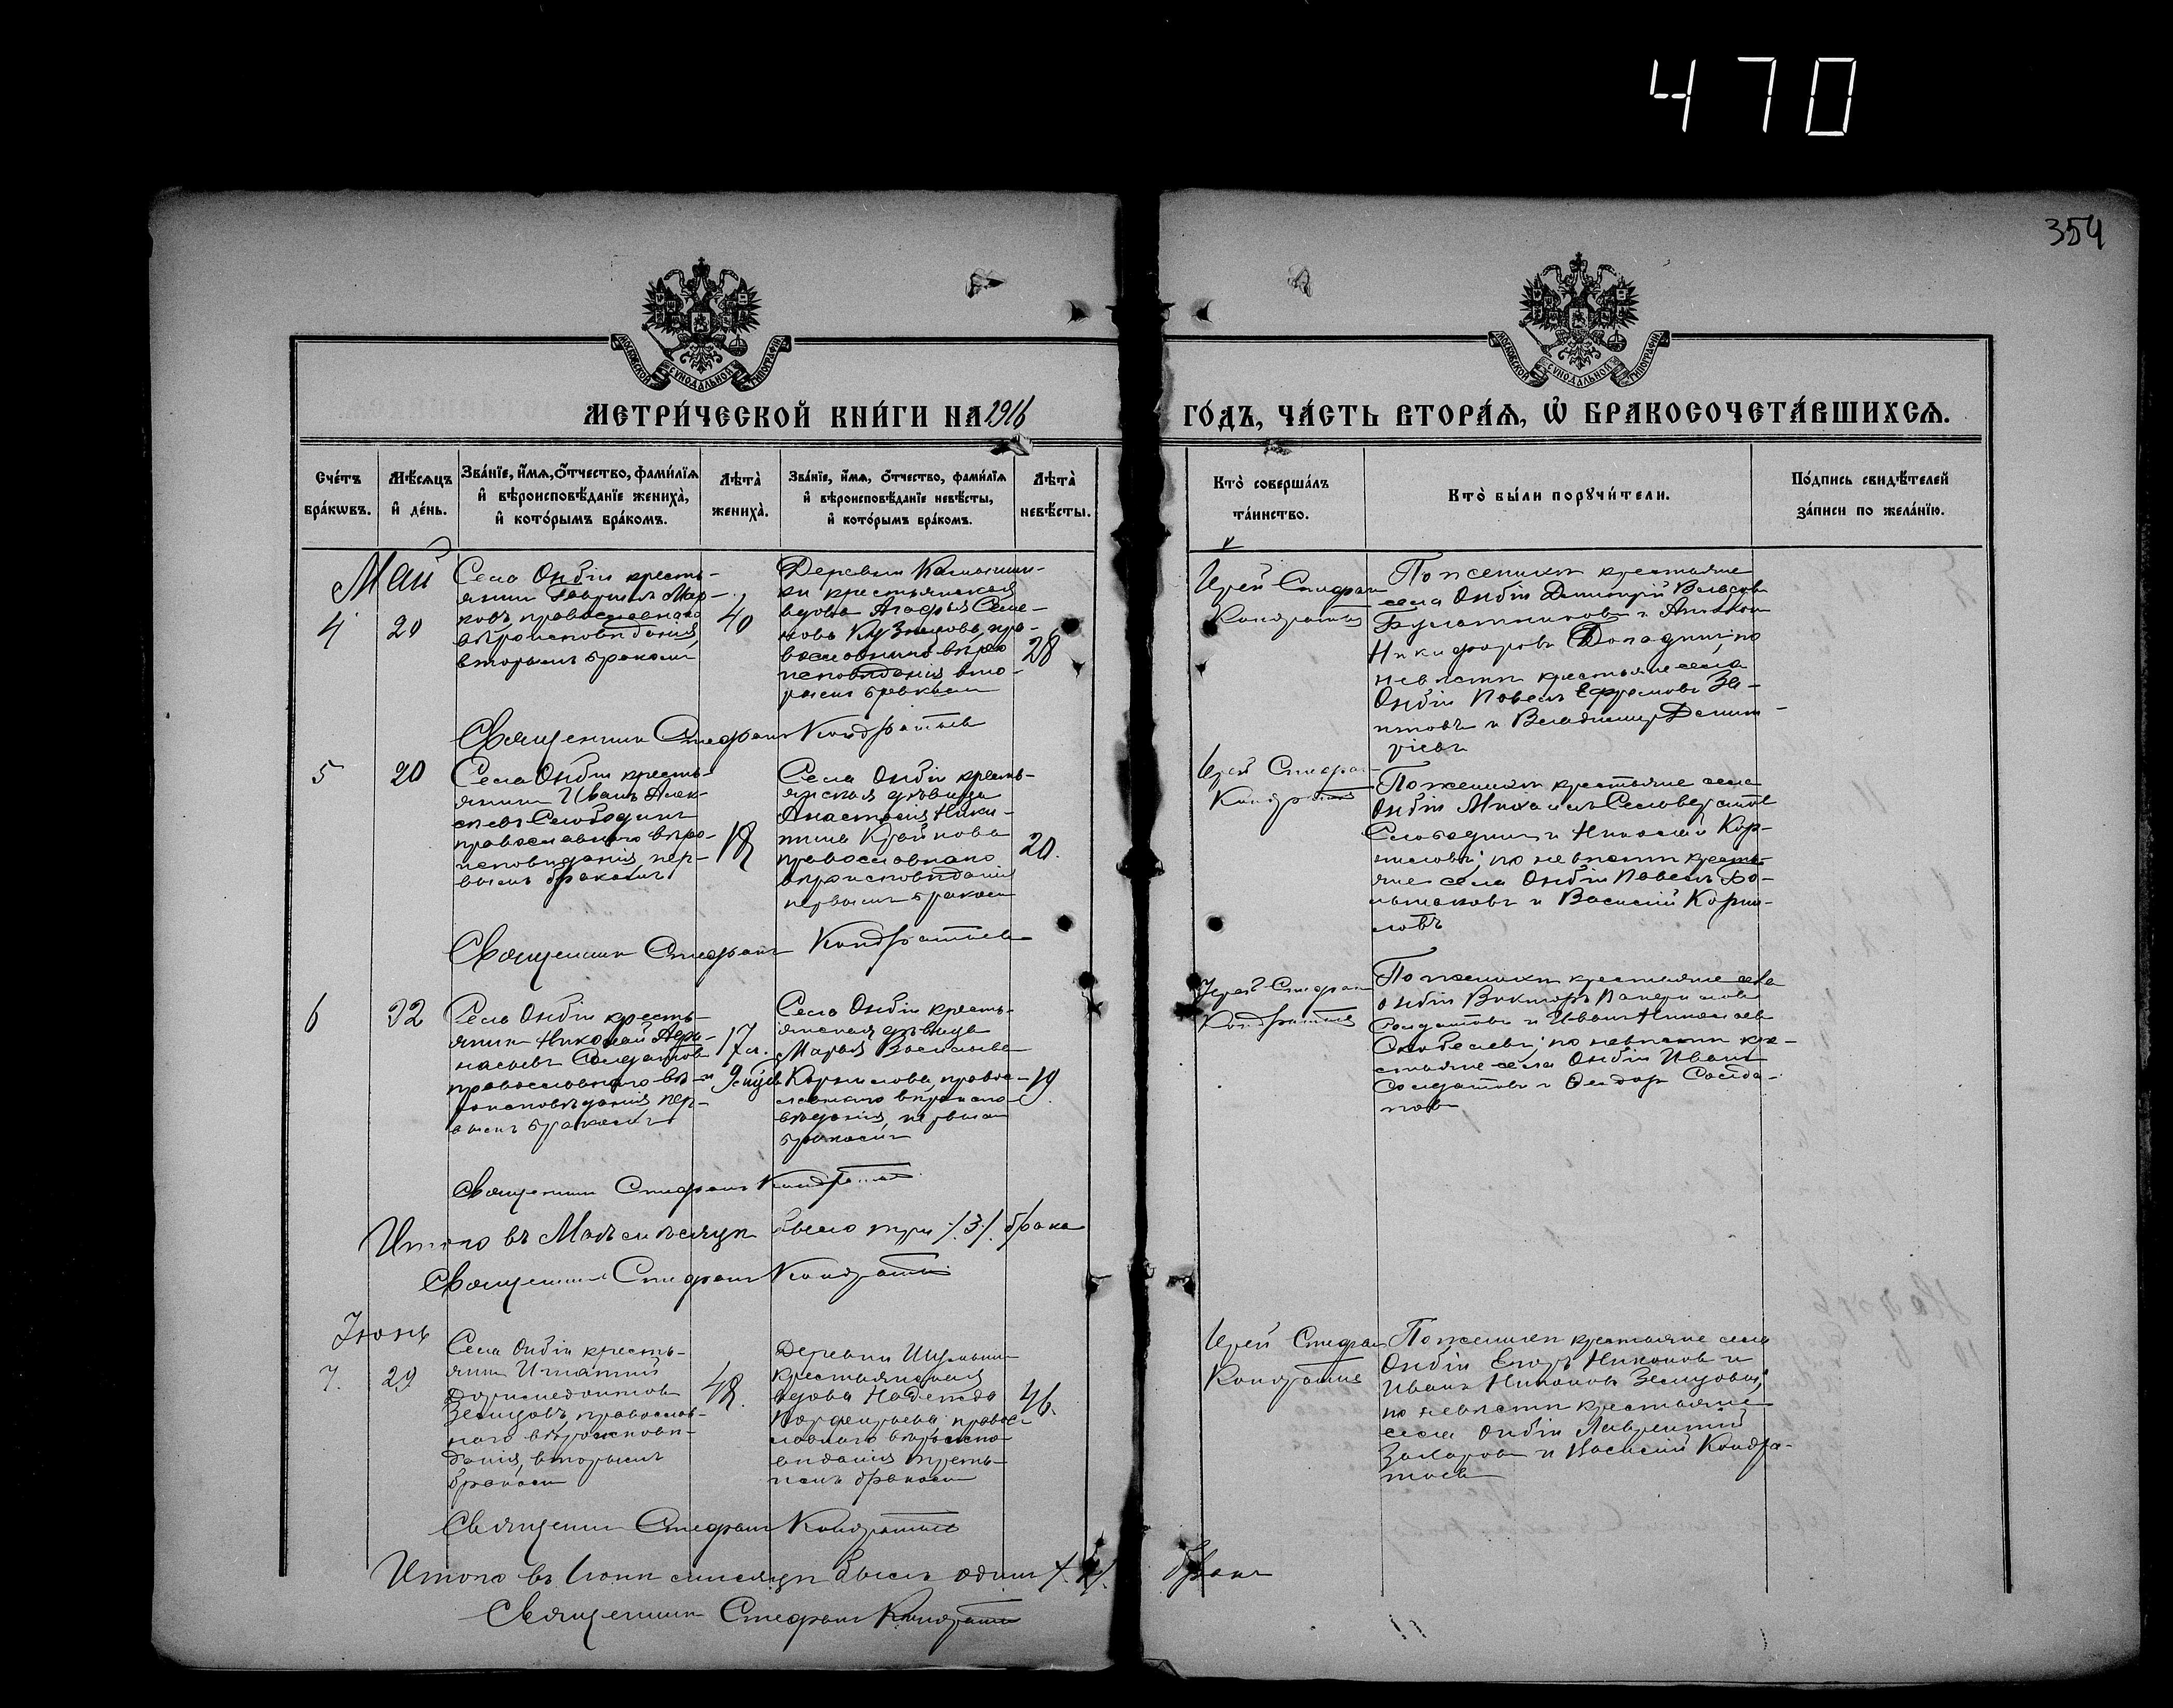 470
354
МОСКОВСКОЙ СУНОДАЛЬНОЙ ТИПОГРАФИИ
МОСКОВСКОЙ СУНОДАЛЬНОЙ ТИПОГРАФИИ
МЕТРИ́ЧЕСКОЙ КНИ́ГИ НА 1916
ГО́ДЪ, ЧА́СТЬ ВТОРА́Ѧ, Ѡ҆ БРАКОСОЧЕТА́ВШИХСѦ.
Сче́тъ
бра́кѡвъ.
Мѣ́сѧцъ
и҆ де́нь.
Зва́нїе, и҆́мѧ, ѻ҆́тчество, фами́лїѧ
и҆ вѣроисповѣ́данїе жениха̀,
и҆ кото́рымъ бра́комъ.
Лѣта̀
жениха̀.
Зва́нїе, и҆́мѧ, ѻ҆́тчество, фами́лїѧ
и҆ вѣроисповѣ́данїе невѣ́сты,
и҆ кото́рымъ бра́комъ.
Лѣта̀
невѣ́сты.
Кто̀ соверша́лъ
та́инство.
Кто̀ бы́ли порꙋчи́тели.
По́дпись свидѣ́телей
за́писи по жела́нїю.
Май
4
20
Села Онбіи кресть-
янинъ Гавріилъ Мар-
ковъ, православнаго
вѣроисповѣданія,
вторымъ бракомъ
40
Деревни
ки крестьянская
вдова Агафья Семе-
нова Кузнецова, пра-
вославнаго вѣро
исповѣданія, вто-
рымъ бракомъ
28
Іерей Стефанъ
Кондратьевъ
По женихѣ крестьяне
села Онбіи Димитрій Власовъ
и
Никифоровъ по
невѣстѣ крестьяне села
Онбіи Павелъ Ефремовъ За-
итовъ и Владимиръ Димит-
ріевъ
Священникъ Стефанъ Кондратьевъ
5
20
Села Онбіи кресть-
янинъ Иванъ Алек-
сѣевъ Слободинъ
православнаго вѣро-
исповѣданія, пер-
вымъ бракомъ
18
Села Онбіи кресть-
янская дѣвица
Анастасія Ники-
тина Крайнова
православнаго
вѣроисповѣданія
первымъ бракомъ
20.
Іерей Стефанъ
Кондратьевъ
По женихѣ крестьяне села
Онбіи Михаилъ Селивёрстовъ
Слободинъ и Николай Кор-
ниловъ; по невѣстѣ кресть-
яне села Онбіи Павелъ Бо-
льшаковъ и Василій Корни-
ловъ
Священникъ Стефанъ Кондратьевъ
6
22
Села Онбіи кресть-
янинъ Николай Аѳа-
насьевъ Солдатовъ
православнаго вѣ-
роисповѣданія, пер-
вымъ бракомъ
17 л.
и 9 мѣс
Села Онбіи кресть-
янская дѣвица
Марья Васильева
Корнилова, правос-
лавнаго вѣроиспо-
вѣданія, первымъ
бракомъ
19.
Іерей Стефанъ
Кондратьевъ
По женихѣ крестьяне села
Онбіи Викторъ
Солдатовъ и Иванъ Николаевъ
по невѣстѣ кре-
стьяне села Онбіи Иванъ
Солдатовъ и Ѳедоръ Солда-
товъ
Священникъ Стефанъ Кондратьевъ
Итого въ Маѣ мѣсяцѣ было три /3/ брака
Священникъ Стефанъ Кондратьевъ
Іюнь
7.
29
Села Онбіи кресть-
янинъ Игнатій
Земцовъ, православ-
наго вѣроисповѣ-
данія, вторымъ
бракомъ
48.
Деревни
крестьянская
вдова Надежда
правос-
лавнаго вѣроиспо-
вѣданія треть-
имъ бракомъ
46.
Іерей Стефанъ
Кондратьевъ
По женихѣ крестьяне села
Онбіи Егоръ Никоновъ и
Иванъ Никоновъ Земцовы;
по невѣстѣ крестьяне
села Онбіи Лаврентій
Захаровъ и Василій Кондра-
тьевъ
Священникъ Стефанъ Кондратьевъ
Итого въ Іюнѣ мѣсяцѣ былъ одинъ /1/ бракъ
Священникъ Стефанъ Кондратьевъ